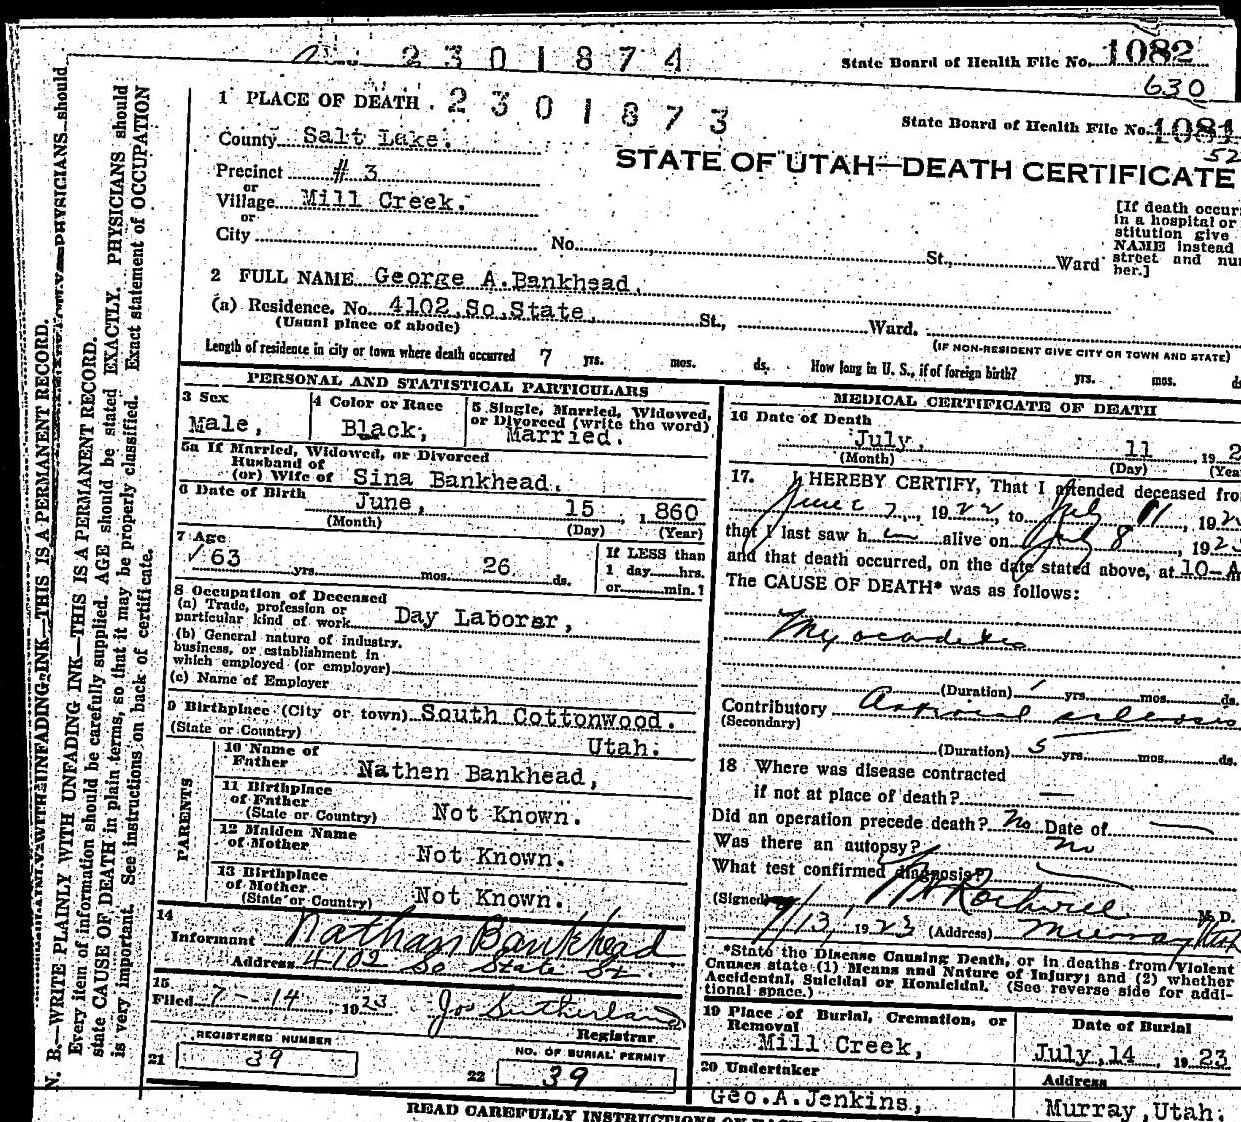 2301874
State Board of Health File No. 1082
630
2301873
State Board of Health File No. 1081
52
1 PLACE OF DEATH
County Salt Lake.
STATE OF UTAH—DEATH CERTIFICATE
Precinct # 3
or
Village Mill Creek.
or
City No. St., Ward
[If death occur
in a hospital or
stitution give
NAME instead
street and nu
ber.]
2 FULL NAME George A.Bankhead.
(a) Residence. No. 4102 So.State. St., Ward.
(Usual place of abode)
(IF NON-RESIDENT GIVE CITY OR TOWN AND STATE)
Length of residence in city or town where death occurred 7 yrs. mos. ds. How long in U. S., if of foreign birth? yrs. mos. ds
PERSONAL AND STATISTICAL PARTICULARS
3 Sex
Male,
4 Color or Race
Black,
5 Single, Married, Widowed,
or Divorced (write the word)
Married.
5a If Married, Widowed, or Divorced
Husband of
(or) Wife of Sina Bankhead.
6 Date of Birth June, 15, 1860
(Month) (Day) (Year)
7 Age
63 yrs. mos. 26 ds.
If LESS than
1 day hrs.
or min.?
8 Occupation of Deceased
(a) Trade, profession or
particular kind of work Day Laborer,
(b) General nature of industry,
business, or establishment in
which employed (or employer)
(c) Name of Employer
9 Birthplace (City or town) South Cottonwood.
(State or Country) Utah.
PARENTS
10 Name of
Father Nathen Bankhead,
11 Birthplace
of Father
(State or Country) Not Known.
12 Maiden Name
of Mother Not Known.
13 Birthplace
of Mother
(State or Country) Not Known.
14
Informant Nathan Bankhead
Address 4102 So State St
15
Filed 7-14, 1923 Jos Sutherland
Registrar
REGISTERED NUMBER
21 39
NO. OF BURIAL PERMIT
22 39
MEDICAL CERTIFICATE OF DEATH
16 Date of Death
July, 11 192
(Month) (Day) (Yea
17. I HEREBY CERTIFY, That I attended deceased fro
June 7, 1922, to July 11, 192
that I last saw h alive on July 8, 192
and that death occurred, on the date stated above, at 10-A
The CAUSE OF DEATH* was as follows:
Myocarditis
(Duration) 1 yrs. mos. ds.
Contributory Arterial sclerosis
(Secondary)
(Duration) 5 yrs. mos. ds.
18 Where was disease contracted
if not at place of death? —
Did an operation precede death? No Date of
Was there an autopsy? No
What test confirmed diagnosis?
(Signed) Rockwell M. D.
7/13, 1923 (Address) Murray Utah
*State the Disease Causing Death, or in deaths from Violent
Causes state (1) Means and Nature of Injury; and (2) whether
Accidental, Suicidal or Homicidal. (See reverse side for addi-
tional space.)
19 Place of Burial, Cremation, or
Removal
Mill Creek,
Date of Burial
July,14 1923
20 Undertaker
Geo.A.Jenkins,
Address
Murray,Utah.
READ CAREFULLY INSTRUCTIONS ON
N. B.—WRITE PLAINLY WITH UNFADING INK—THIS IS A PERMANENT RECORD.
Every item of information should be carefully supplied. AGE should be stated EXACTLY. PHYSICIANS should
state CAUSE OF DEATH in plain terms, so that it may be properly classified. Exact statement of OCCUPATION
is very important. See instructions on back of certificate.